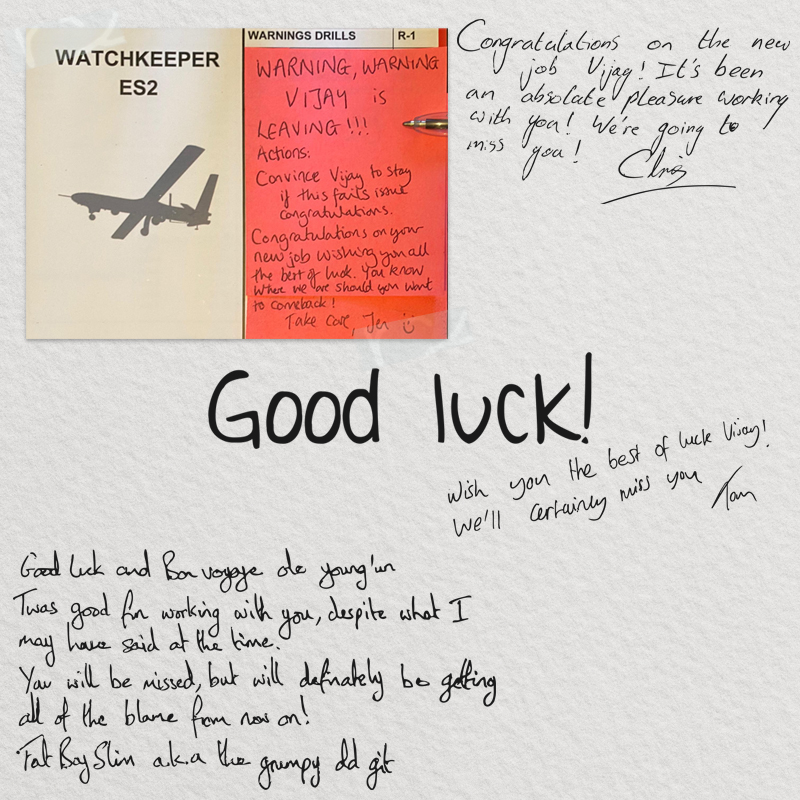 WATCHKEEPER
ES2
WARNINGS DRILLS R-1
WARNING, WARNING
VIJAY is
LEAVING!!!
Actions:
Convince Vijay to stay
if this fails issue
congratulations.
Congratulations on your
new job wishing you all
the best of luck. You know
where we are should you want
to comeback!
Take care, Jen
Congratulations on the new
job Vijay! It's been
an absolute pleasure working
with you! We're going to
miss you!
Chris
Good luck!
Wish you the best of luck Vijay!
We'll certainly miss you
Tom
Good luck and Bon voyage ole young'un
Twas good fun working with you, despite what I
may have said at the time.
You will be missed, but will definately be getting
all of the blame from now on!
Fat Boy Slim a.k.a the grumpy old git